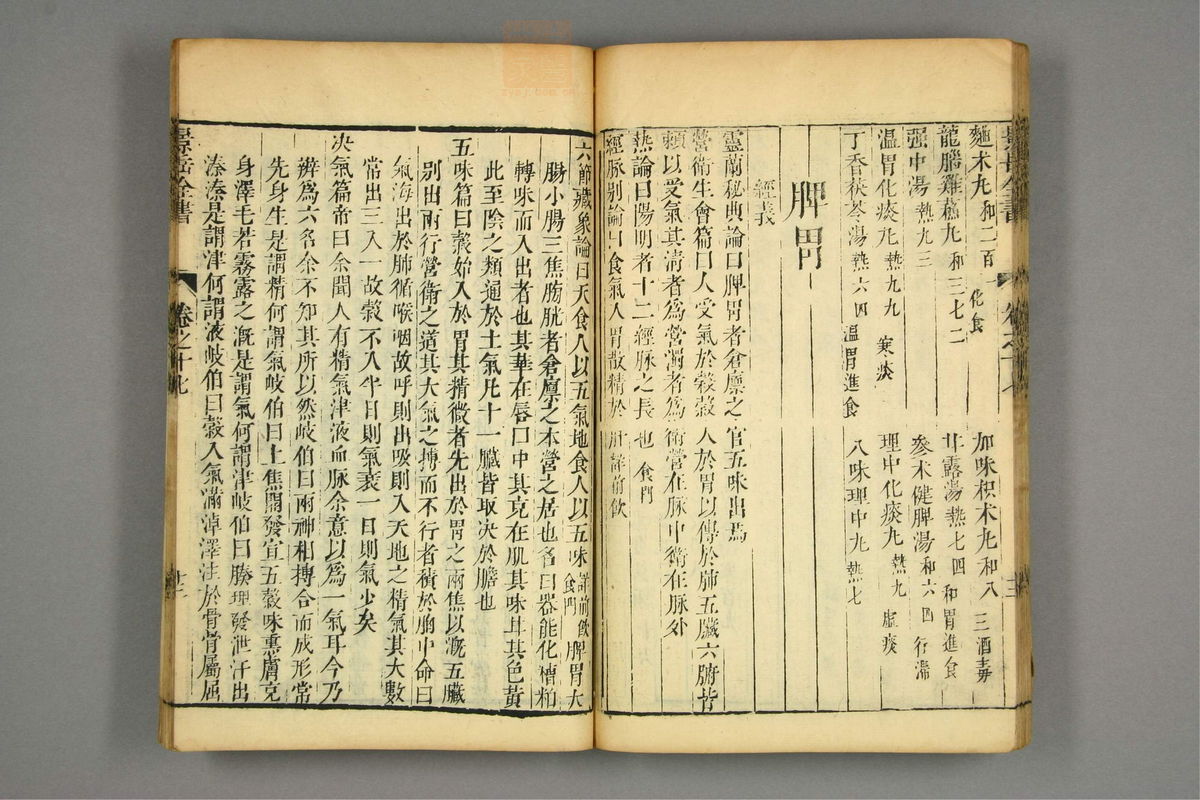 麯术丸和二百一 化食 加味枳术丸和八三 酒毒
龍腦雞蘇丸和三七二 甘露湯熱七四 和胃進食
强中湯熱九三 參术健脾湯和六四 行滯
温胃化痰丸熱九九 寒痰 理中化痰丸熱九 虚痰
丁香茯苓湯熱六四 温胃進食 八味理中丸熱七
脾胃
經義
靈蘭秘典論曰脾胃者倉廪之官五味出焉
營衛生會篇曰人受氣於穀穀入於胃以傳於肺五臟六腑皆
賴以受氣其清者爲營濁者爲衛營在脉中衛在脉外
熱論曰陽明者十二經脉之長也 食門
經脉别論曰食氣入胃散精於肝 詳前飲
六節藏象論曰天食人以五氣地食人以五味 詳前飲食門 脾胃大
腸小腸三焦膀胱者倉廪之本營之居也名曰器能化糟粕
轉味而入出者也其華在唇口中其充在肌其味甘其色黃
此至陰之類通於土氣凡十一臟皆取决於膽也
五味篇曰榖始入於胃其精微者先出於胃之兩焦以溉五臟
别出兩行營衛之道其大氣之搏而不行者積於胸中命曰
氣海出於肺循喉咽故呼則出吸則入天地之精氣其大數
常出三入一故榖不入半日則氣衰一日則氣少矣
决氣篇帝曰余聞人有精氣津液血脉余意以爲一氣耳今乃
辨爲六名余不知其所以然岐伯曰兩神相搏合而成形常
先身生是謂精何謂氣岐伯曰上焦開發宣五榖味熏膚充
身澤毛若霧露之溉是謂氣何謂津岐伯曰腠理發泄汗出
溱溱是謂津何謂液岐伯曰榖入氣滿淖澤注於骨骨屬屈
景岳全書 卷之十七 十二